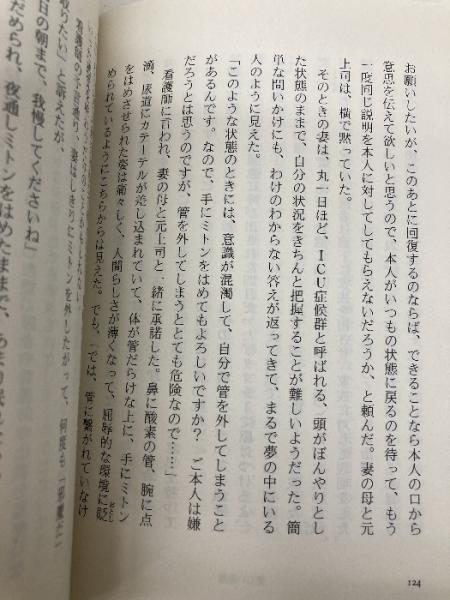 お願いしたいが、このあとに回復するのならば、できることなら本人の口から
意思を伝えて欲しいと思うので、本人がいつもの状態に戻るのを待って、もう
一度同じ説明を本人に対してしてもらえないだろうか、と頼んだ。妻の母と元
上司は、横で黙っていた。
そのときの妻は、丸一日ほど、ICU症候群と呼ばれる、頭がぼんやりとし
た状態のままで、自分の状況をきちんと把握することが難しいようだった。簡
単な問いかけにも、わけのわからない答えが返ってきて、まるで夢の中にいる
人のように見えた。
「このような状態のときには、意識が混濁して、自分で管を外してしまうこと
があるんです。なので、手にミトンをはめてもよろしいですか？　ご本人は嫌
だろうとは思うのですが、管を外してしまうととても危険なので……」
看護師に言われ、妻の母と元上司と一緒に承諾した。鼻に酸素の管、腕に点
滴、尿道にカテーテルが差し込まれていて、体が管だらけな上に、手にミトン
をはめさせられた姿は痛々しく、人間らしさが薄くなって、屈辱的な環境に貶
おとし
められているようにこちらからは見えた。でも、一では、管に繋がれていなけ
を外したがって、何度も「邪魔だ
取りたい」と訴えたが、
日の朝まで、我慢してくださいね」
だめられ、夜通しミトンをはめたままで、あまり
124